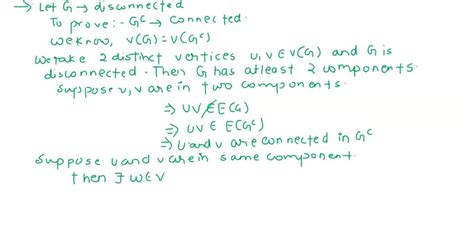 → Let G → disconnected
To prove:- Gᶜ → connected.
We know, V(G) = V(Gᶜ)
We take 2 distinct vertices u, v ∈ V(G) and G is
disconnected. Then G has atleast 2 components.
Suppose u, v are in two components.
⇒ UV ∉ E(G)
⇒ UV ∈ E(Gᶜ)
⇒ U and v are connected in Gᶜ
Suppose u and v are in same component.
then ∃ w ∈ V